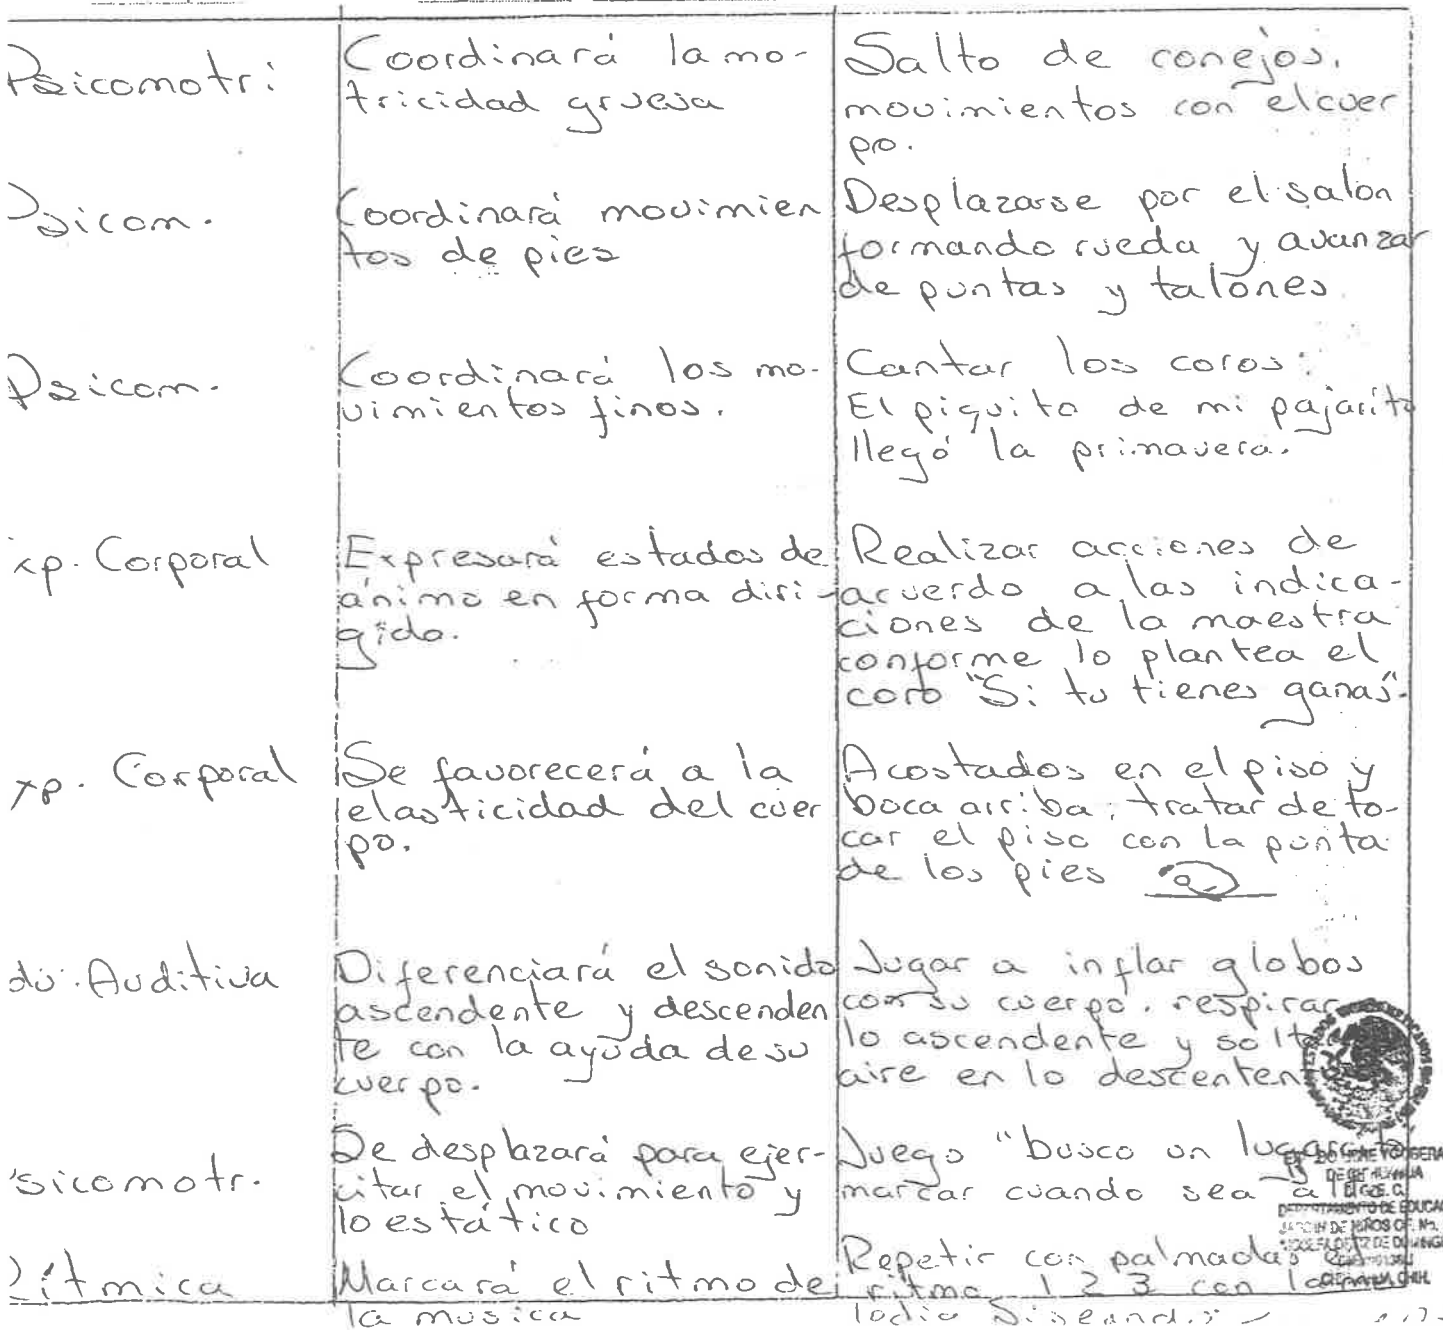 Psicomotri
Coordinará la mo-
tricidad gruesa
Salto de conejos.
movimientos con el cuer
po.
Psicom.
Coordinará movimien
tos de pies
Desplazarse por el salon
formando rueda y avanzar
de puntas y talones
Psicom.
Coordinará los mo-
vimientos finos.
Cantar los coros:
El piquito de mi pajarito
llegó la primavera.
xp. Corporal
Expresará estados de
ánimo en forma diri-
gida.
Realizar acciones de
acuerdo a las indica-
ciones de la maestra
conforme lo plantea el
coro "Si tu tienes ganas".
xp. Corporal
Se favorecerá a la
elasticidad del cuer
po.
Acostados en el piso y
boca arriba, tratar de to-
car el piso con la punta
de los pies
du. Auditiva
Diferenciará el sonido
ascendente y descenden
te con la ayuda de su
cuerpo.
Jugar a inflar globos
con su cuerpo. respirar
lo ascendente y solt
aire en lo descenten
sicomotr.
Se desplazará para ejer-
citar el movimiento y
lo estático
Juego "busco un lugarcito
marcar cuando sea
Rítmica
Marcará el ritmo de
la musica
Repetir con palmadas el
ritmo 1 2 3 con la
DEPARTAMENTO DE EDUCA
JARDIN DE NIÑOS OF. No.